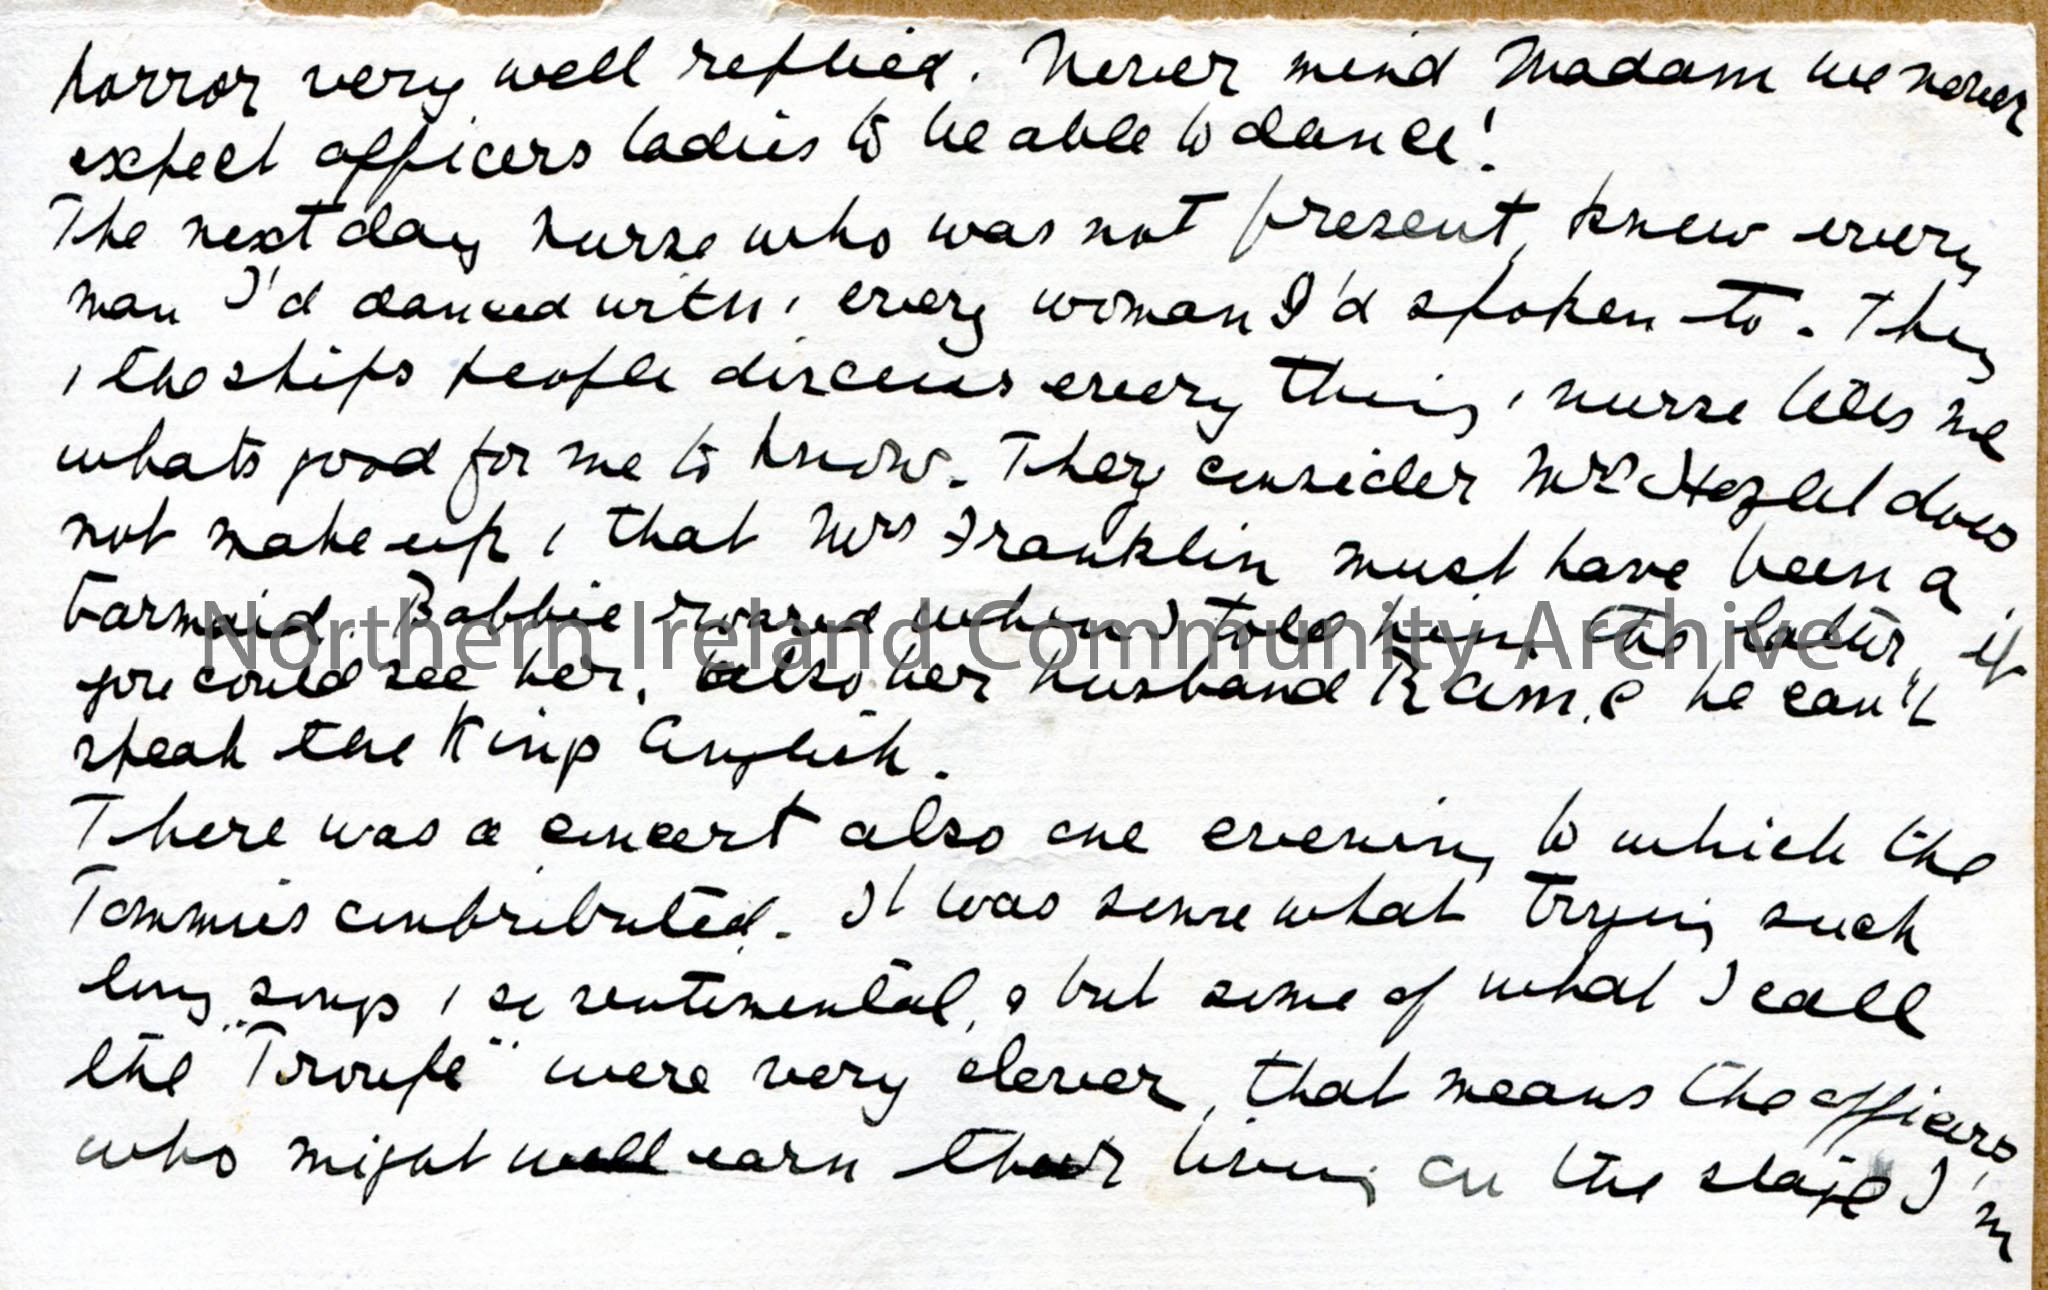 horror very well replied. Never mind Madam we never
expect officers ladies to be able to dance!
The next day Nurse who was not present, knew every
man I'd danced with, every woman I'd spoken to. They
, the ships people discuss every thing, nurse tells me
whats good for me to know. They consider Mrs Hezlet does
not make up, that Mrs Franklin must have been a
barmaid. Bobbie roared when I told him the latter, if
you could see her, also her husband R.A.M.C he can't
speak the King English.
There was a concert also one evening to which the
Tommies contributed. It was somewhat trying such
long songs, so sentimental, but some of what I call
the "Troupe" were very clever, that means the officers
who might well earn their living on the stage I'm
Northern Ireland Community Archive